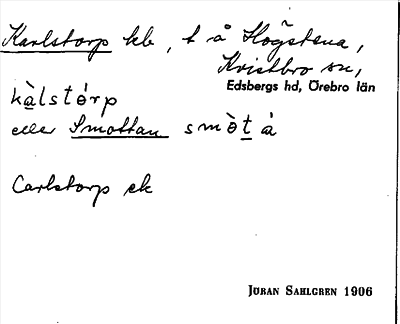 Karlstorp hb, t å Högstena,
Kvistbro sn,
Edsbergs hd, Örebro län
kàlstórp
eller Smottan smòtà
Carlstorp ek
JÖRAN SAHLGREN 1906